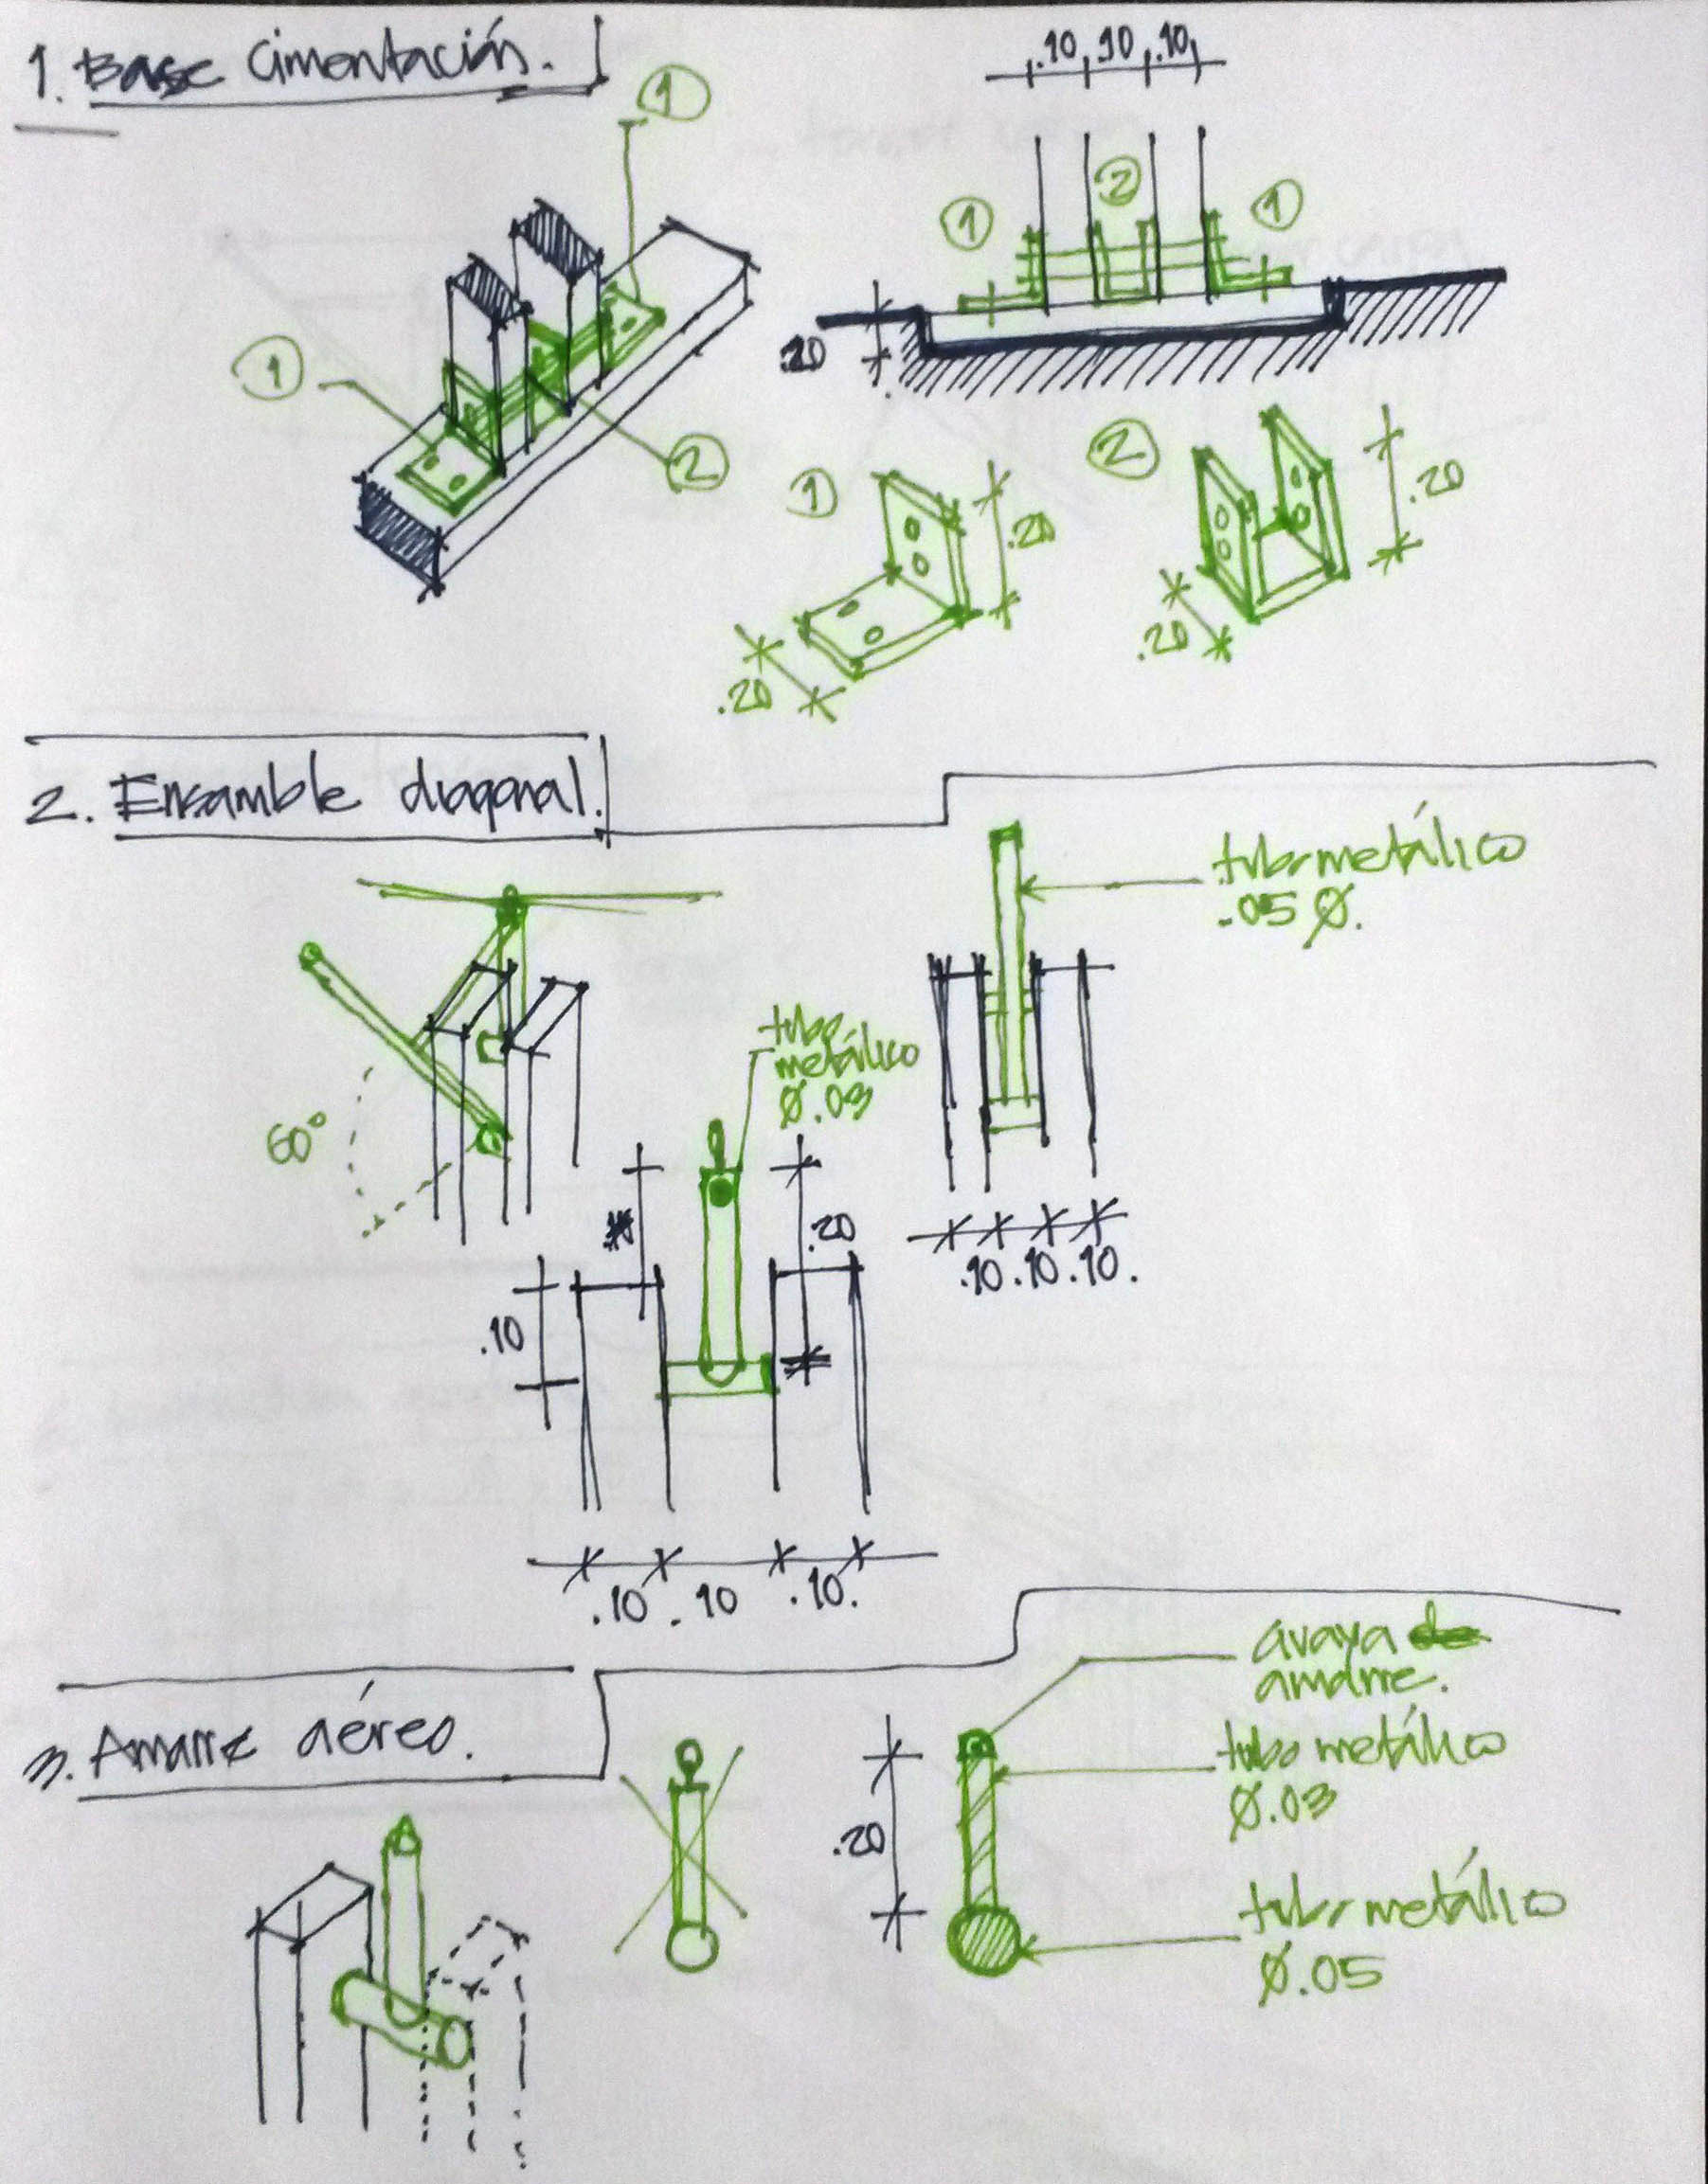 1. Base Cimentación.
1
.10 .10 .10
1
2
1
1
2
.20
1
.20
.20
2
.20
.20
2. Ensamble diagonal.
tubo metálico
.05 Ø.
60°
tubo
metálico
Ø.03
.20
.10
.10 .10 .10.
.10 .10 .10.
3. Amarre aéreo.
amarre.
tubo metálico
Ø.03
.20
tubo metálico
Ø.05